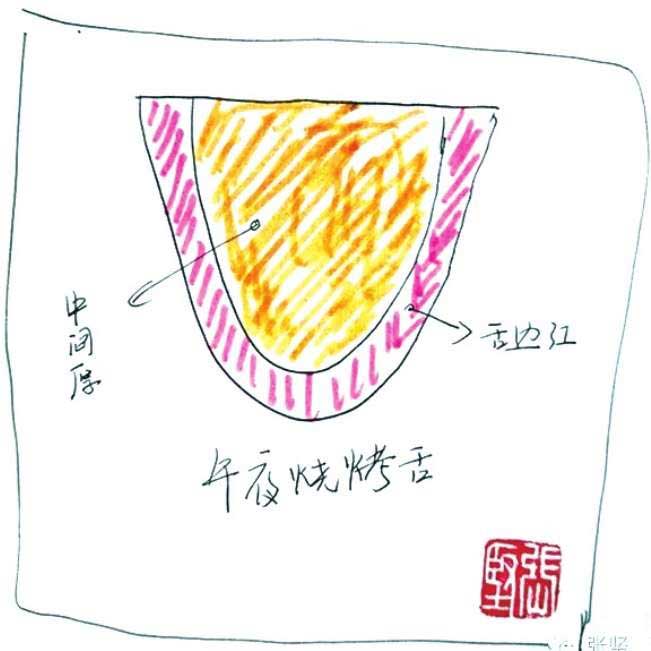 中间厚
舌边红
午夜烧烤舌
张坚
张坚